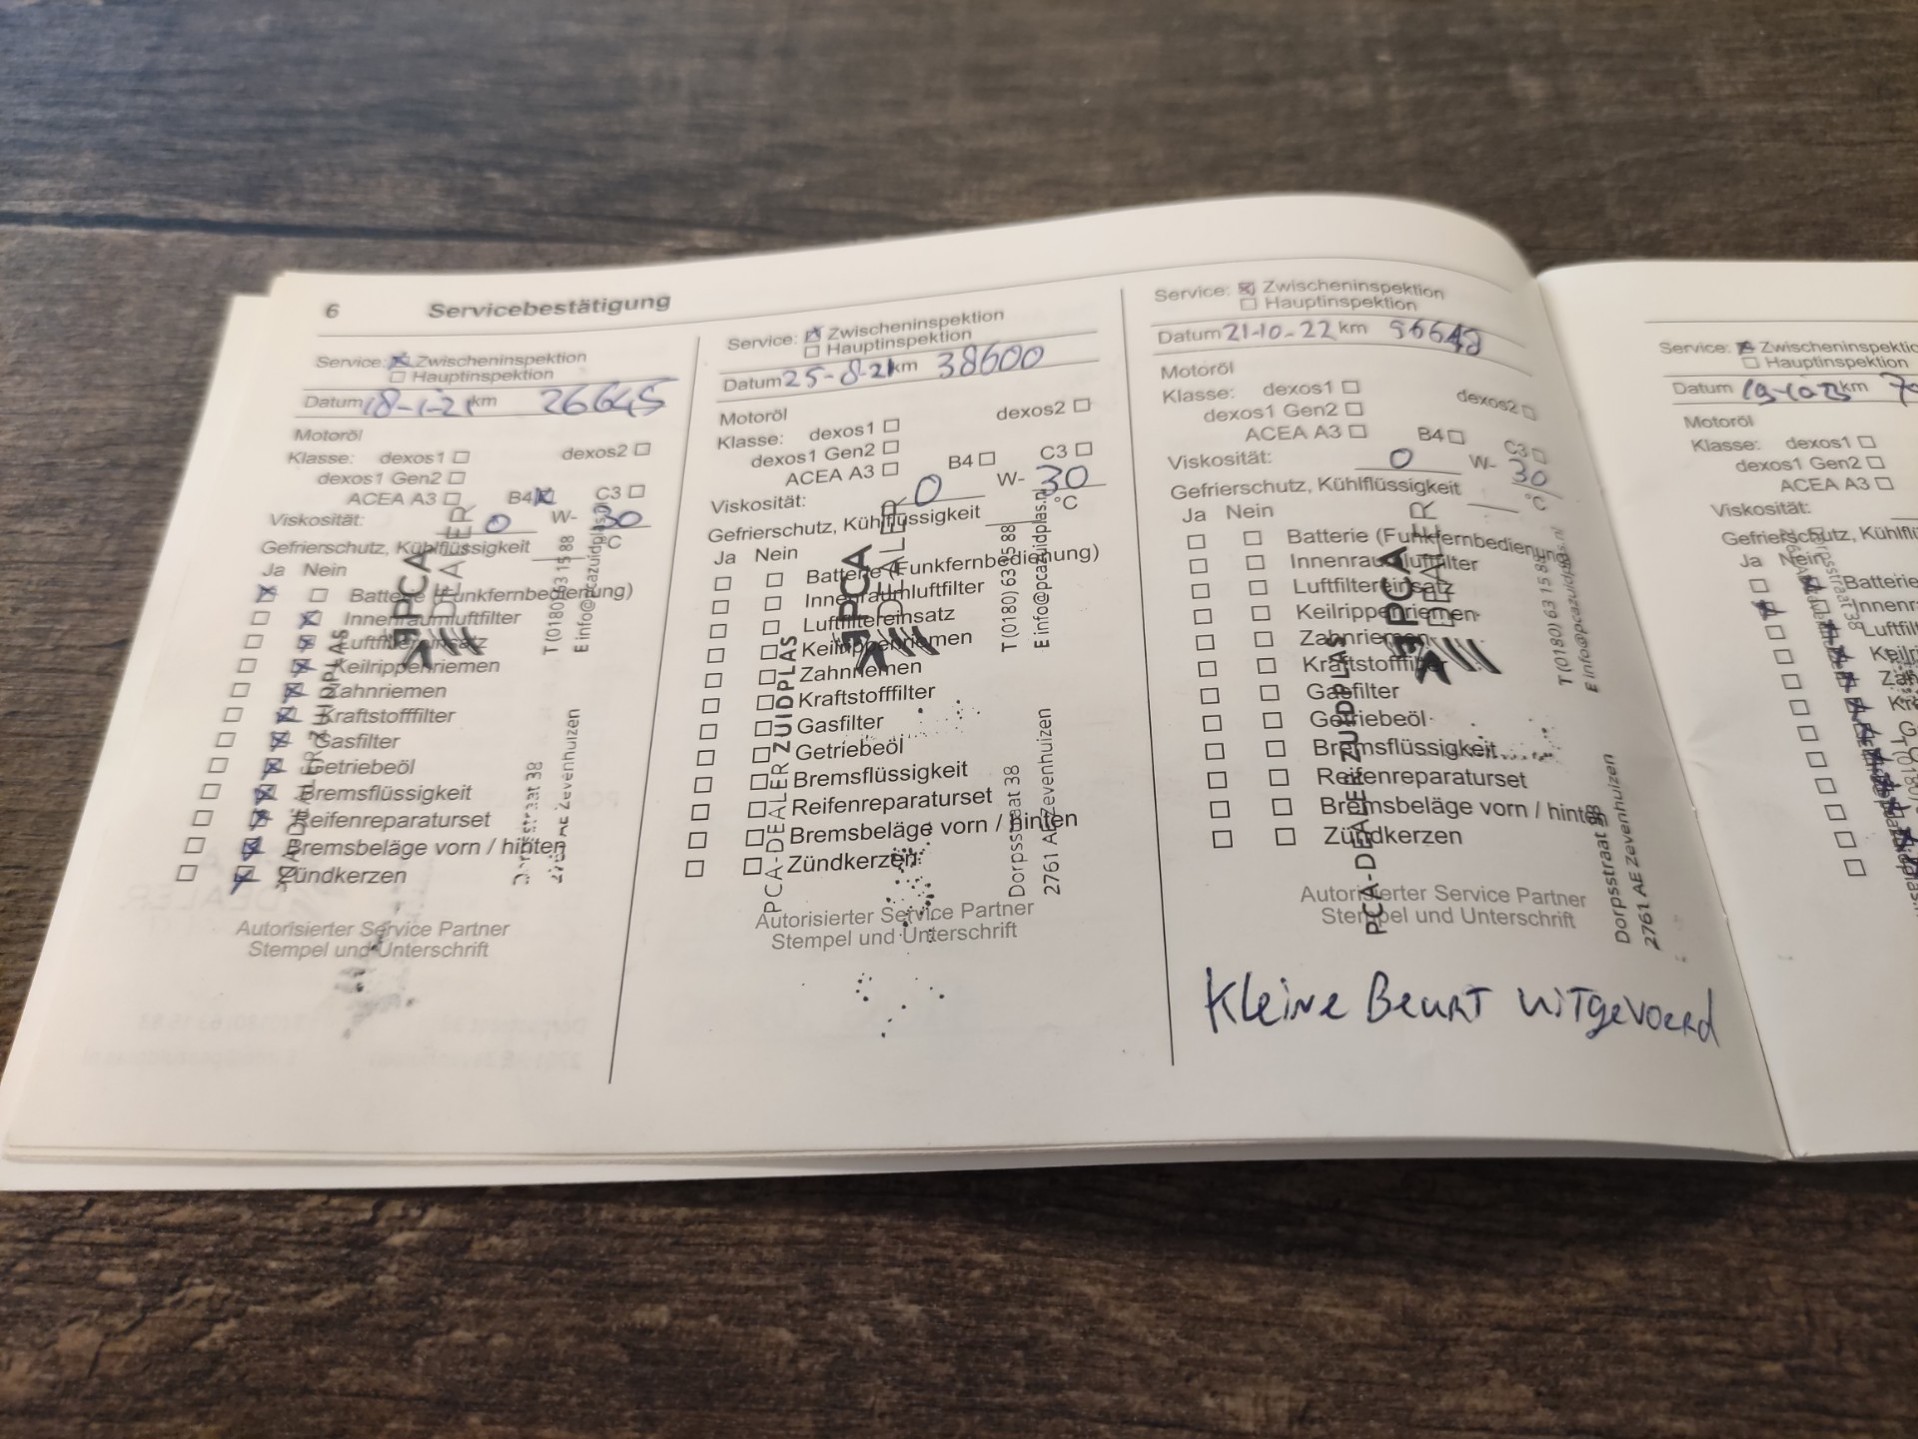 6 Servicebestätigung
Service: Zwischeninspektion
Hauptinspektion
Datum 18-1-21 km 26645
Motoröl
Klasse: dexos1 dexos2
dexos1 Gen2
ACEA A3 B4 C3
Viskosität: 0 W- 30
Gefrierschutz, Kühlflüssigkeit °C
Ja Nein
Batterie (Funkfernbedienung)
Innenraumluftfilter
Luftfiltereinsatz
Keilrippenriemen
Zahnriemen
Kraftstofffilter
Gasfilter
Getriebeöl
Bremsflüssigkeit
Reifenreparaturset
Bremsbeläge vorn / hinten
Zündkerzen
Autorisierter Service Partner
Stempel und Unterschrift
PCA
DEALER
T (0180) 63 15 88
E info@pcazuidplas.nl
Service: Zwischeninspektion
Hauptinspektion
Datum 25-8-21 km 38600
Motoröl
Klasse: dexos1 dexos2
dexos1 Gen2
ACEA A3 B4 C3
Viskosität: 0 W- 30
Gefrierschutz, Kühlflüssigkeit °C
Ja Nein
Batterie (Funkfernbedienung)
Innenraumluftfilter
Luftfiltereinsatz
Keilrippenriemen
Zahnriemen
Kraftstofffilter
Gasfilter
Getriebeöl
Bremsflüssigkeit
Reifenreparaturset
Bremsbeläge vorn / hinten
Zündkerzen
Autorisierter Service Partner
Stempel und Unterschrift
PCA
DEALER
PCA-DEALER ZUIDPLAS
Dorpsstraat 38 T (0180) 63 15 88
2761 AE Zevenhuizen E info@pcazuidplas.nl
Service: Zwischeninspektion
Hauptinspektion
Datum 21-10-22 km 56648
Motoröl
Klasse: dexos1 dexos2
dexos1 Gen2
ACEA A3 B4 C3
Viskosität: 0 W- 30
Gefrierschutz, Kühlflüssigkeit °C
Ja Nein
Batterie (Funkfernbedienung)
Innenraumluftfilter
Luftfiltereinsatz
Keilrippenriemen
Zahnriemen
Kraftstofffilter
Gasfilter
Getriebeöl
Bremsflüssigkeit
Reifenreparaturset
Bremsbeläge vorn / hinten
Zündkerzen
Autorisierter Service Partner
Stempel und Unterschrift
PCA
DEALER
PCA-DEALER ZUIDPLAS
Dorpsstraat 38 T (0180) 63 15 88
2761 AE Zevenhuizen E info@pcazuidplas.nl
Kleine Beurt uitgevoerd
Service: Zwischeninspektio
Hauptinspektion
Datum 19-10-23 km
Motoröl
Klasse: dexos1
dexos1 Gen2
ACEA A3
Viskosität:
Gefrierschutz, Kühlflü
Ja Nein
Batterie
Innenr
Luftfilt
Keilri